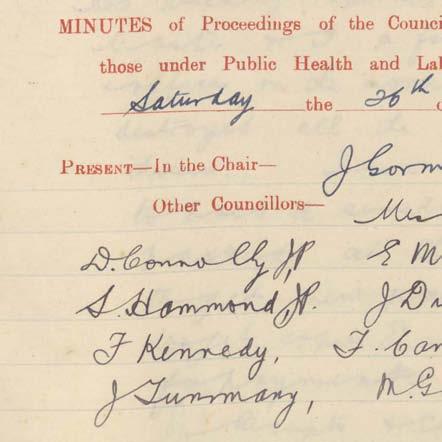 MINUTES of Proceedings of the Counci
those under Public Health and Lab
Saturday the 26th
PRESENT—In the Chair—
J Gorm
Other Councillors—
D. Connolly, JP E M
S. Hammond, JP. J D
F Kennedy, F. Can
J M.G